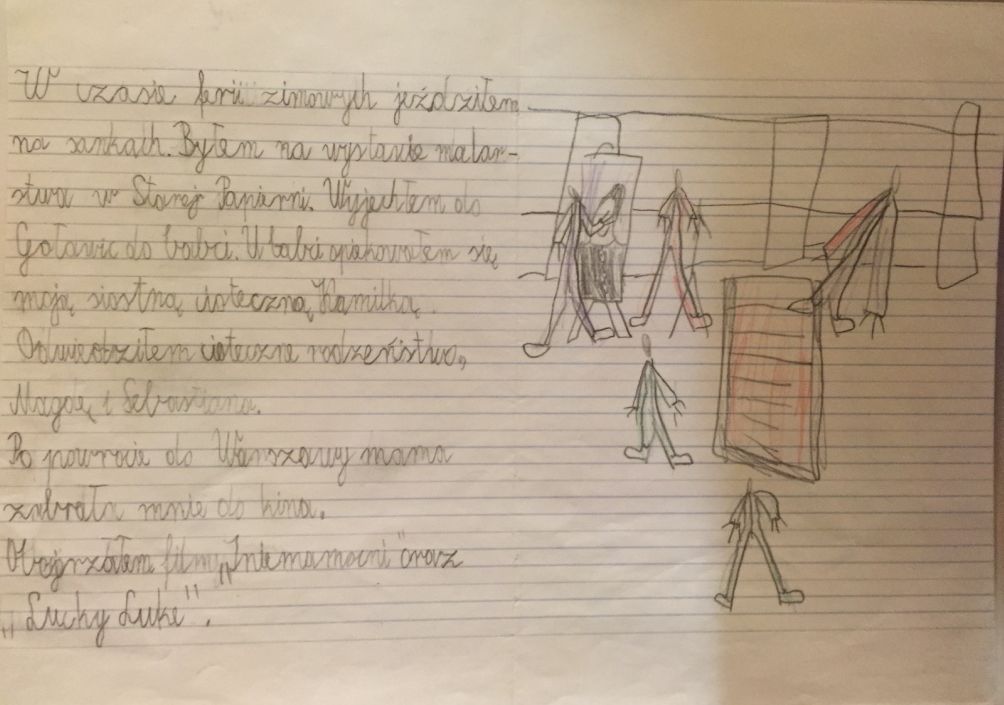 W czasie ferii zimowych jeździłem
na sankach. Byłem na wystawie malar-
stwa w Starej Papierni. Wyjechłem do
Goławic do babci. U babci opiekowałem się
moją siostrą cioteczną, Kamilką.
Odwiedziłem cioteczne rodzeństwo,
Magdę i Sebastiana.
Po powrocie do Warszawy mama
zabrała mnie do kina.
Obejrzałem film „Iniemamocni" oraz
„Lucky Luke".